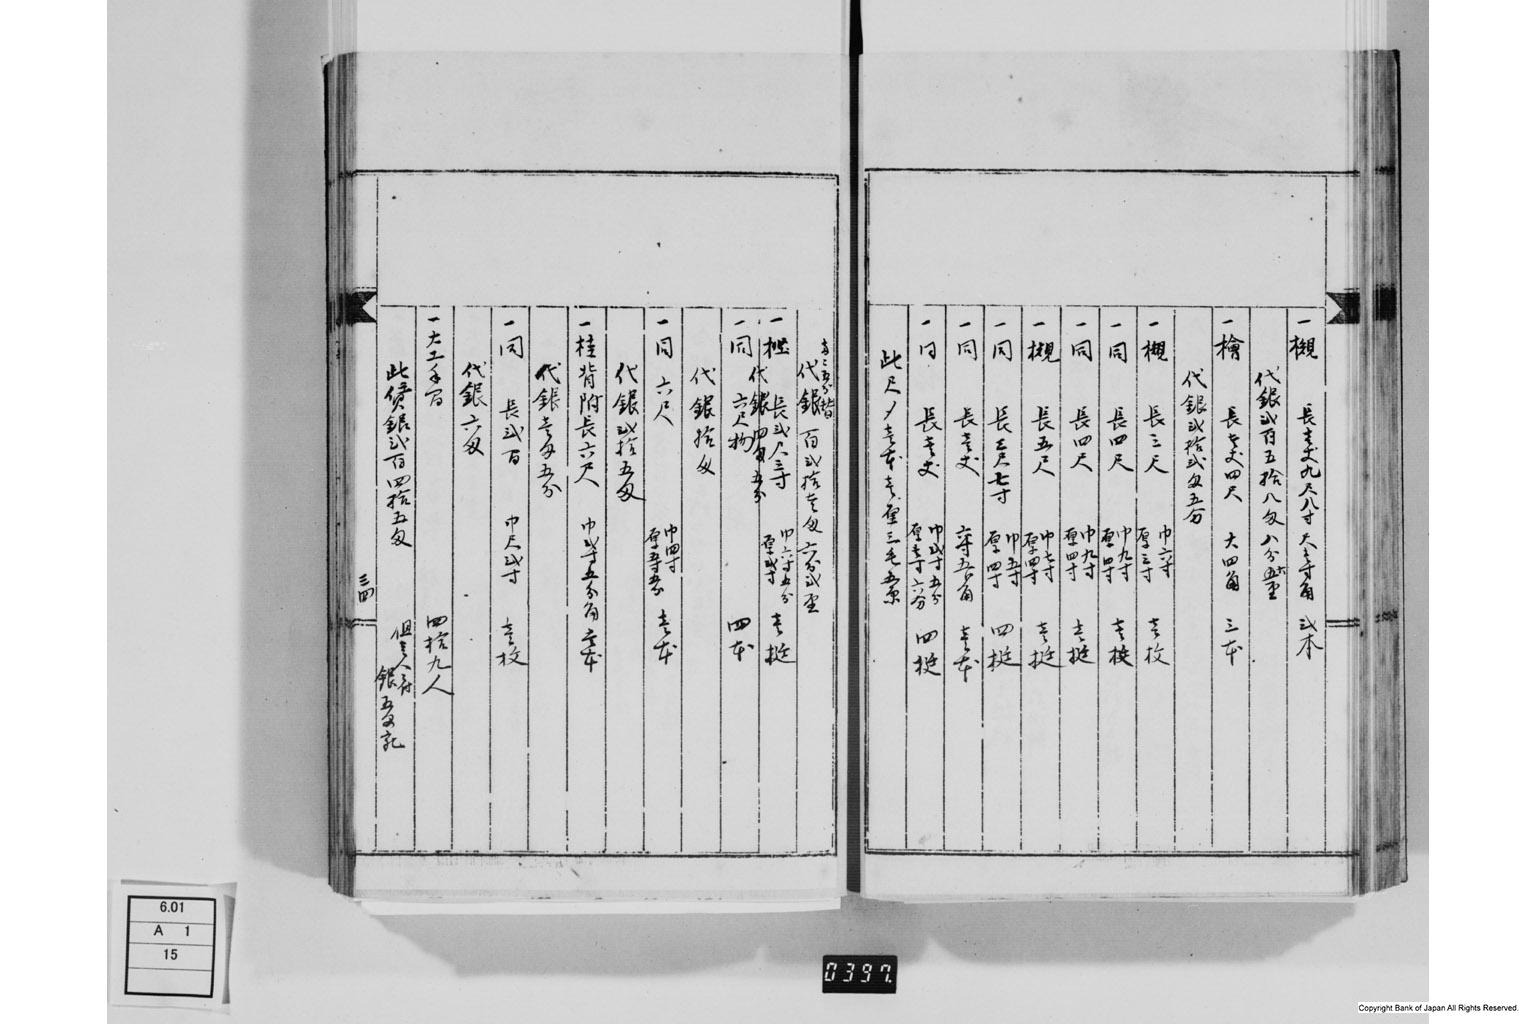 一槻 長壱丈九尺八寸 大壱寸角 弐本
代銀弐百五拾八匁八分五厘
一檜 長壱丈四尺 大四角 三本
代銀弐拾弐匁五分
一槻 長三尺 巾六寸 厚三寸 壱枚
一同 長四尺 巾九寸 厚四寸 壱挺
一同 長四尺 巾九寸 厚四寸 壱挺
一槻 長五尺 巾七寸 厚四寸 壱挺
一同 長三尺七寸 巾五寸 厚四寸 四挺
一同 長壱丈 六寸五分角 壱本
一同 長壱丈 巾弐寸五分 厚壱寸六分 四挺
此尺〆壱本壱厘三毛五糸
代銀百弐拾壱匁六分弐厘
一樫 長弐尺三寸 巾六寸五分 厚弐寸 壱挺
代銀四匁五分
一同 六尺物 四本
代銀拾匁
一同 六尺 巾四寸 厚五寸五分 壱本
代銀弐拾五匁
一桂 背附長六尺 巾弐寸五分角 壱本
代銀壱匁五分
一同 長弐間 巾尺弐寸 壱枚
代銀六匁
一大工手間 四拾九人
此賃銀弐百四拾五匁 但壱人ニ付 銀五匁宛
三四
6.01
A 1
15
0397.
Copyright Bank of Japan All Rights Reserved.